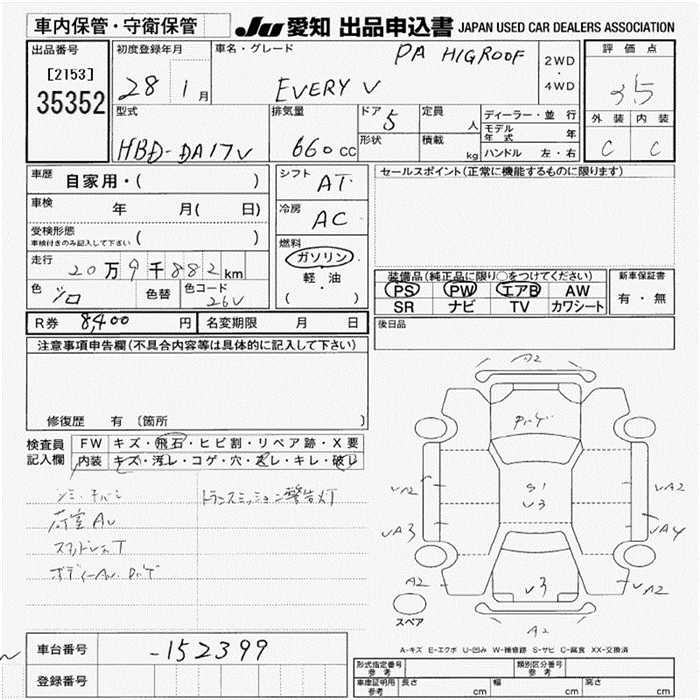 車内保管・守衛保管
JU 愛知 出品申込書 JAPAN USED CAR DEALERS ASSOCIATION
出品番号
[2153]
35352
初度登録年月
28 1月
車名・グレード
PA HIGROOF
EVERY V
2WD
・
4WD
評価点
3.5
外装 内装
C C
型式
HBD-DA17V
排気量
660cc
ドア
5
形状
定員
人
積載
kg
ディーラー・並行
モデル年式 年
ハンドル 左・右
車歴
自家用・( )
車検
年 月( 日)
受検形態
車検付きのみ記入して下さい ( )
走行
20万9千882km
色
シロ
色替
色コード
26V
シフト
AT
冷房
AC
燃料
ガソリン
軽・油
( ・ )
セールスポイント(正常に機能するものに限ります)
装備品(純正品に限り○をつけてください)
PS PW エアB AW
SR ナビ TV カワシート
新車保証書
有・無
R券 8,400 円 名変期限 月 日
後日品
注意事項申告欄(不具合内容等は具体的に記入して下さい)
修復歴 有 〔箇所 〕
検査員
記入欄
FW キズ・飛石・ヒビ割・リペア跡・X要
内装 キズ・汚レ・コゲ・穴・スレ・キレ・破レ
トランスミッション警告灯
荷室AU
A2
S1
U3
UA2
UA2
UA3
UA4
A2
U3
UA2
A2
スペア
A-キズ E-エクボ U-凹み W-補修跡 S-サビ C-腐食 XX-交換済
車台番号 -152399
登録番号
形式指定番号
参考
類別区分番号
参考
車庫証明用
参考
長さ cm 幅 cm 高さ cm